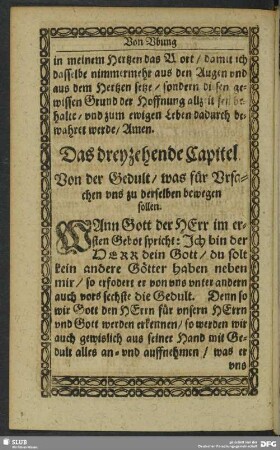 Von Vbung
in meinem Hertzen das Wort / damit ich
dasselbe nimmermehr aus den Augen vnd
aus dem Hertzen setze / sondern disen ge-
wissen Grund der Hoffnung allzeit fen be-
halte / vnd zum ewigen Leben dadurch be-
wahret werde / Amen.
Das dreyzehende Capitel.
Von der Gedult / was für Vrsa-
chen vns zu derselben bewegen
sollen.
WAnn Gott der HErr im er-
sten Gebot spricht: Jch bin der
HERR dein Gott / du solt
kein andere Götter haben neben
mir / so erfodert er von vns vnter andern
auch vors sechste die Gedult. Denn so
wir Gott den HErrn für vnsern HErrn
vnd Gott werden erkennen / so werden wir
auch gewislich aus seiner Hand mit Ge-
dult alles an- vnd auffnehmen / was er
vns
SLUB